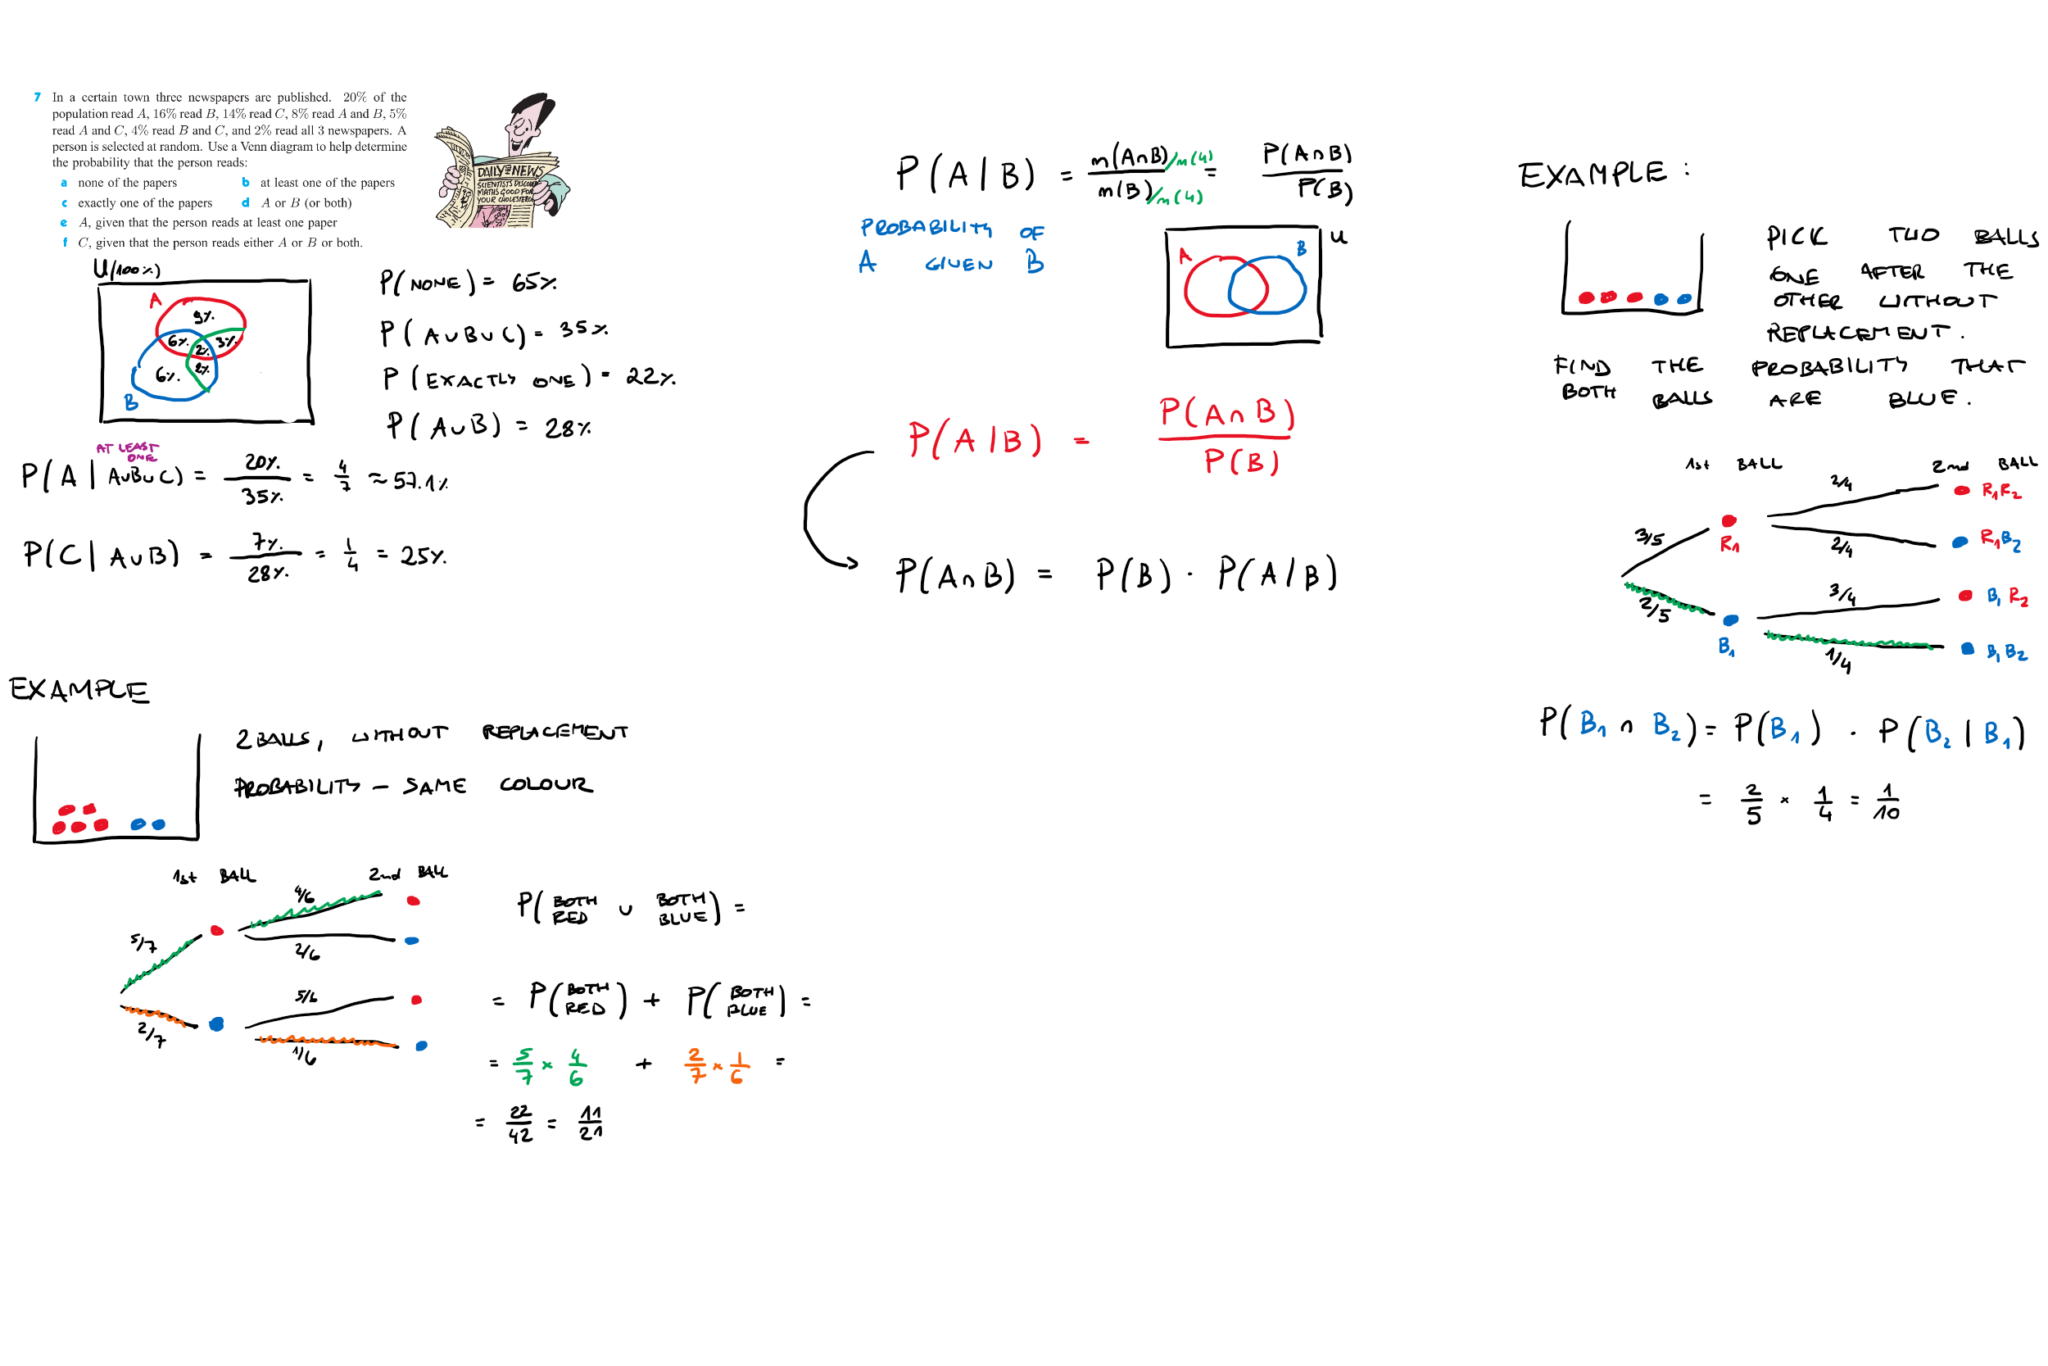 7 In a certain town three newspapers are published. 20% of the
population read A, 16% read B, 14% read C, 8% read A and B, 5%
read A and C, 4% read B and C, and 2% read all 3 newspapers. A
person is selected at random. Use a Venn diagram to help determine
the probability that the person reads:
a none of the papers b at least one of the papers
c exactly one of the papers d A or B (or both)
e A, given that the person reads at least one paper
f C, given that the person reads either A or B or both.
DAILY NEWS
SCIENTISTS DISCOVER
MATHS GOOD FOR
YOUR CHOLESTEROL
U(100%)
A
9%
6% 2% 3%
6% 2%
B
P(NONE) = 65%
P(A∪B∪C) = 35%
P(EXACTLY ONE) = 22%
P(A∪B) = 28%
AT LEAST
ONE
P(A | A∪B∪C) = 20%/35% = 4/7 ≈ 57.1%
P(C | A∪B) = 7%/28% = 1/4 = 25%
EXAMPLE
2 BALLS, WITHOUT REPLACEMENT
PROBABILITY – SAME COLOUR
1st BALL 2nd BALL
5/7
4/6
2/6
2/7
5/6
1/6
P(BOTH RED ∪ BOTH BLUE) =
= P(BOTH RED) + P(BOTH BLUE) =
= 5/7 × 4/6 + 2/7 × 1/6 =
= 22/42 = 11/21
P(A|B) = n(A∩B)/n(U) / n(B)/n(U) = P(A∩B)/P(B)
PROBABILITY OF
A GIVEN B
A B U
P(A|B) = P(A∩B)/P(B)
P(A∩B) = P(B) · P(A|B)
EXAMPLE:
PICK TWO BALLS
ONE AFTER THE
OTHER WITHOUT
REPLACEMENT.
FIND THE PROBABILITY THAT
BOTH BALLS ARE BLUE.
1st BALL 2nd BALL
3/5
R₁
2/4
R₁R₂
2/4
R₁B₂
2/5
B₁
3/4
B₁R₂
1/4
B₁B₂
P(B₁ ∩ B₂) = P(B₁) · P(B₂ | B₁)
= 2/5 × 1/4 = 1/10